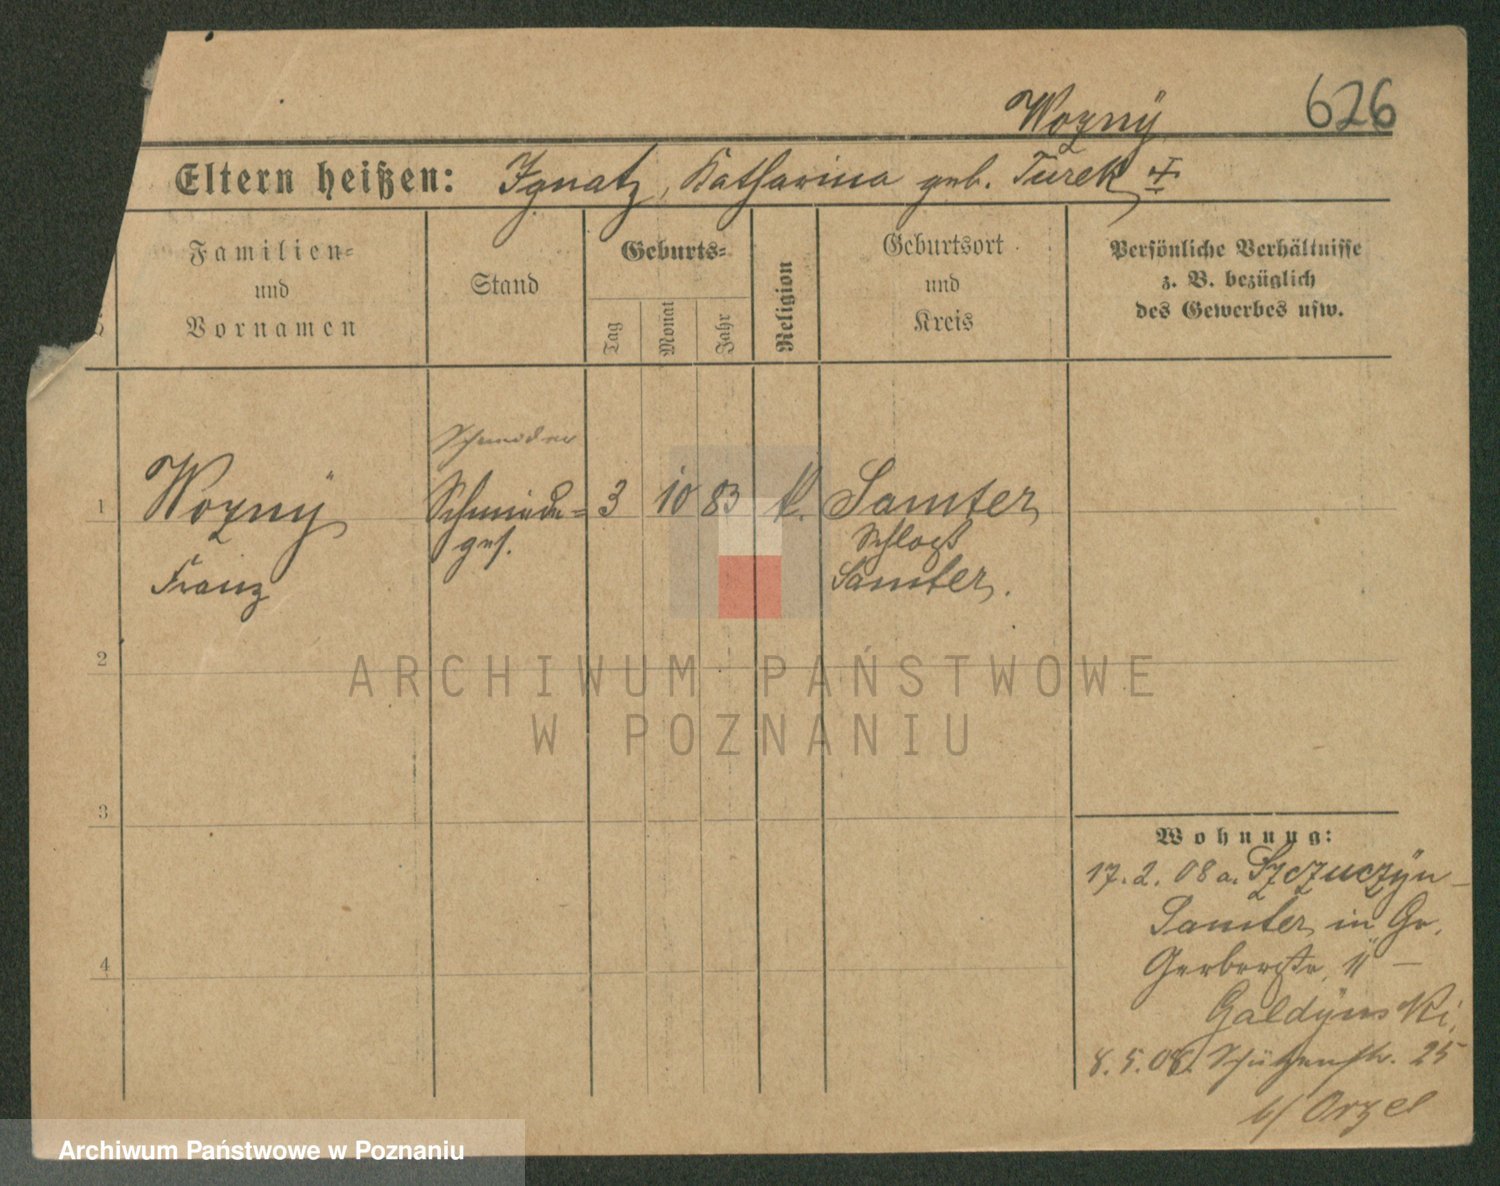 626
Wozný
Eltern heißen: Ignatz, Katharina geb. Turek
Familien=
und
Vornamen
Stand
Geburts=
Tag
Monat
Jahr
Religion
Geburtsort
und
Kreis
Persönliche Verhältnisse
z. B. bezüglich
des Gewerbes usw.
1 Wozný Schmiede= 3 10 83 k. Samter
ges. Schloß
Franz Samter.
2
3
4
Wohnung:
17. 2. 08 a. Szczuczýn
Samter in Gr.
Gerberstr. 11 —
Galdýnski.
8. 5. 08. Schützenstr. 25
b/ Orzel
ARCHIWUM PAŃSTWOWE
W POZNANIU
Archiwum Państwowe w Poznaniu